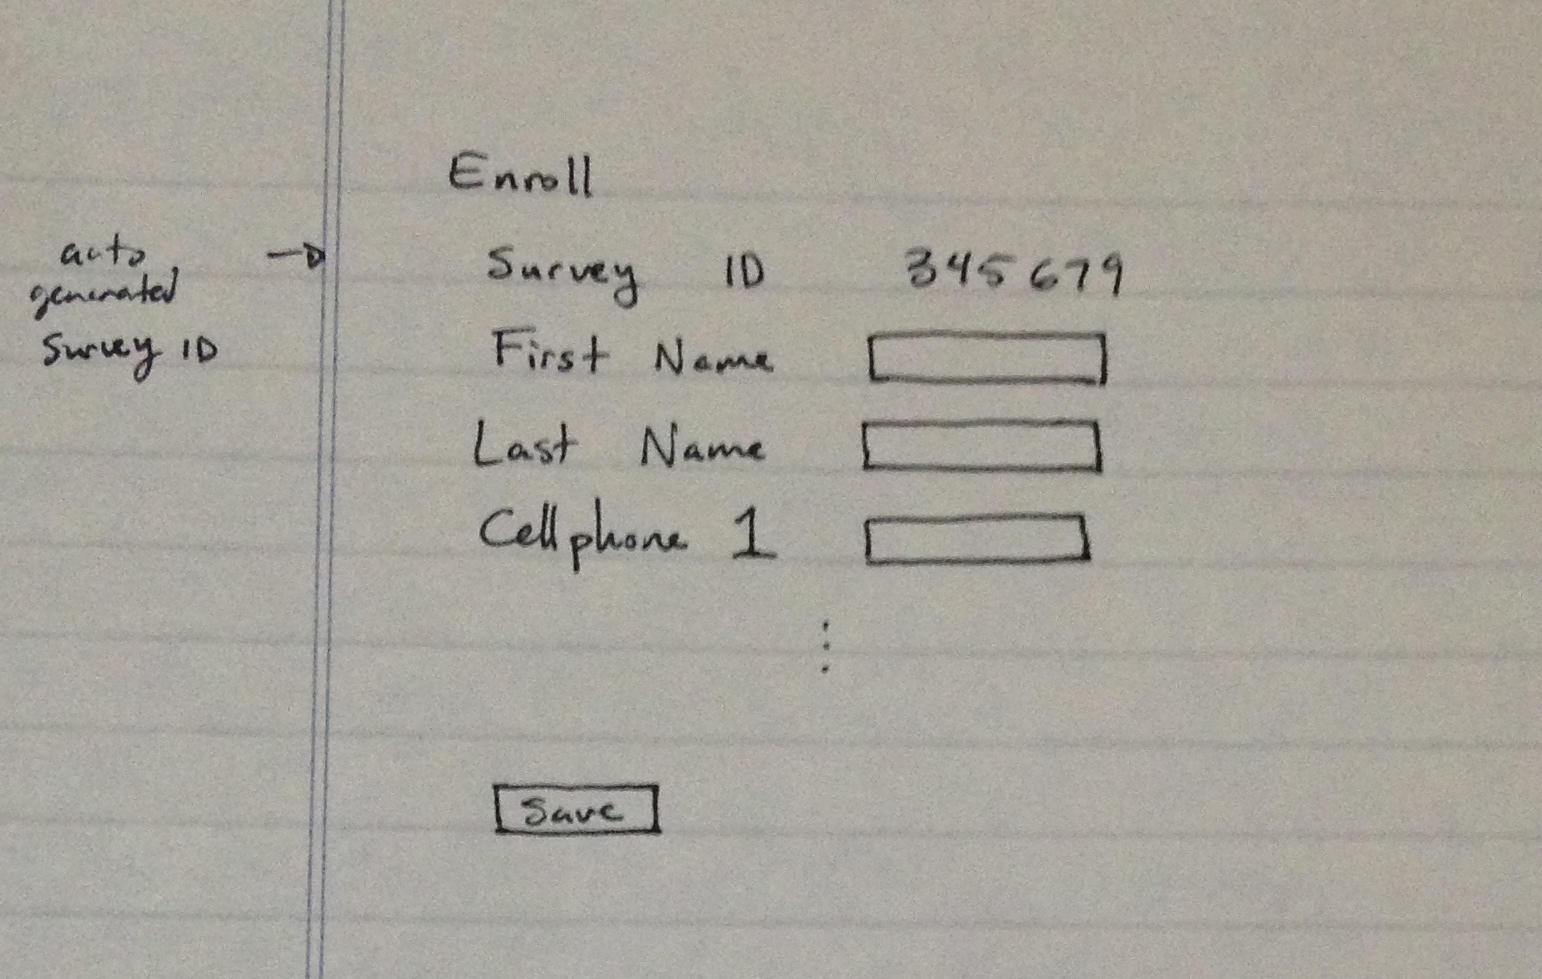 Enroll
auto generated Survey ID
Survey ID 345679
First Name
Last Name
Cellphone 1
Save